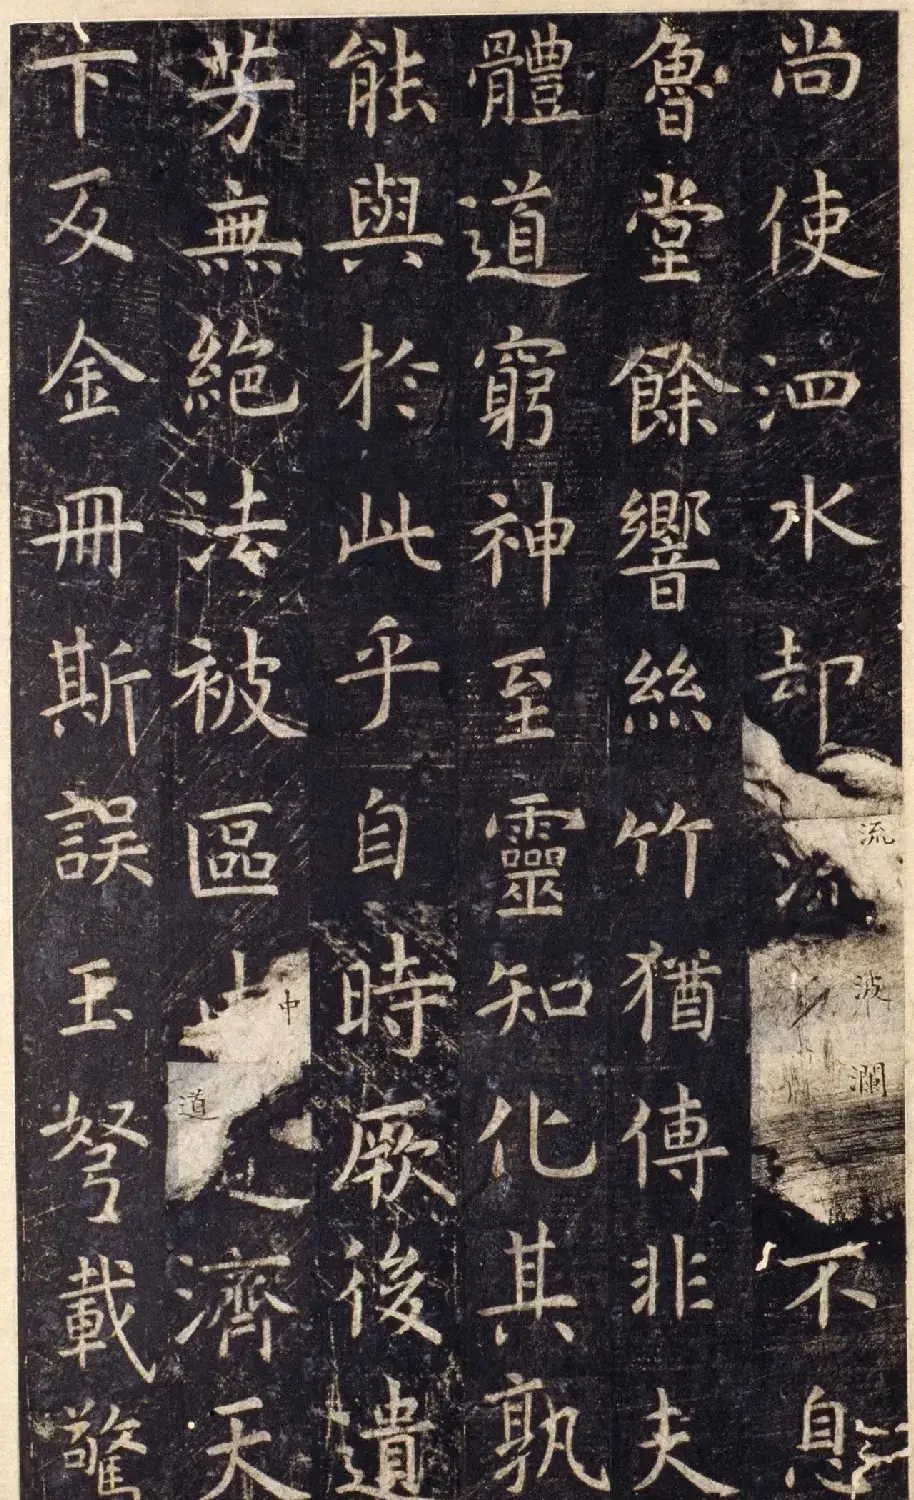 尚使泗水却流波瀾不息
魯堂餘響絲竹猶傳非夫
體道窮神至靈知化其孰
能與於此乎自時厥後遺
芳無絶法被區中道濟天
下及金冊斯誤玉弩載驚